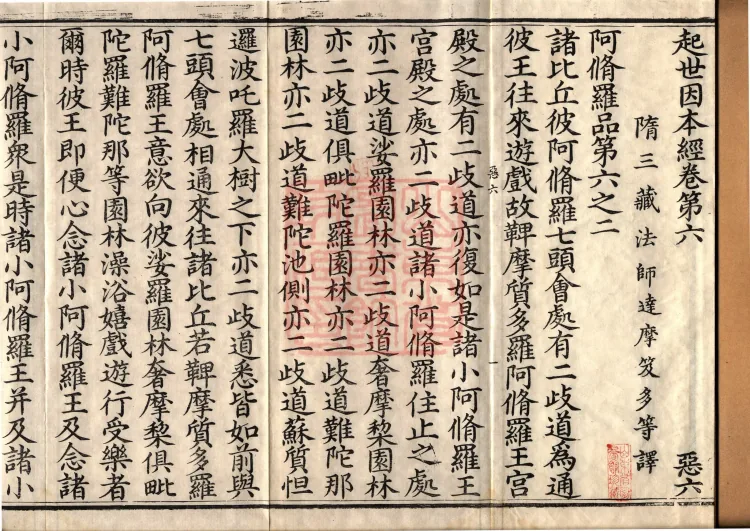 起世因本經卷第六 惡六
隋三藏法師達摩笈多等譯
阿脩羅品第六之二
諸比丘彼阿脩羅七頭會處有二歧道為通
彼王往來遊戲故鞞摩質多羅阿脩羅王宮
惡六 一
殿之處有二歧道亦復如是諸小阿脩羅王
宮殿之處亦二歧道諸小阿脩羅住止之處
亦二歧道娑羅園林亦二歧道奢摩棃園林
亦二歧道俱毗陀羅園林亦二歧道難陀那
園林亦二歧道難陀池側亦二歧道蘇質怛
邏波吒羅大樹之下亦二歧道悉皆如前與
七頭會處相通來往諸比丘若鞞摩質多羅
阿脩羅王意欲向彼娑羅園林奢摩棃俱毗
陀羅難陀那等園林澡浴嬉戲遊行受樂者
爾時彼王即便心念諸小阿脩羅王及念諸
小阿脩羅眾是時諸小阿脩羅王并及諸小